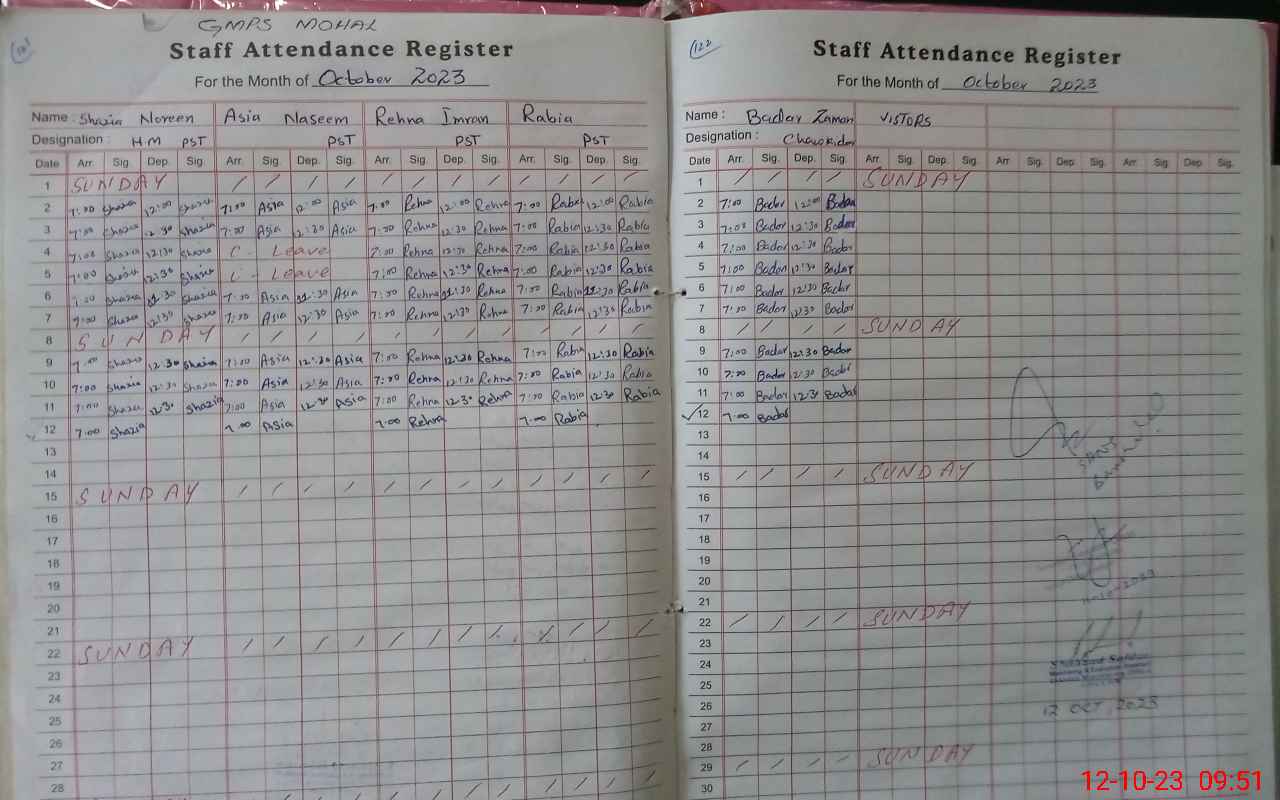 GMPS MOHAL
Staff Attendance Register
For the Month of October 2023
Name : Shazia Noreen Asia Naseem Rehna Imran Rabia
Designation : H.M PST PST PST PST
Date Arr. Sig. Dep. Sig. Arr. Sig. Dep. Sig. Arr. Sig. Dep. Sig. Arr. Sig. Dep. Sig.
1 SUNDAY / / / / / / / / / / / /
2 7:00 Shazia 12:00 Shazia 7:00 Asia 12:00 Asia 7:00 Rehna 12:00 Rehna 7:00 Rabia 12:00 Rabia
3 7:00 Shazia 12:30 Shazia 7:00 Asia 12:30 Asia 7:00 Rehna 12:30 Rehna 7:00 Rabia 12:30 Rabia
4 7:00 Shazia 12:30 Shazia C - Leave 7:00 Rehna 12:30 Rehna 7:00 Rabia 12:30 Rabia
5 7:00 Shazia 12:30 Shazia C - Leave 7:00 Rehna 12:30 Rehna 7:00 Rabia 12:30 Rabia
6 7:00 Shazia 11:30 Shazia 7:00 Asia 11:30 Asia 7:00 Rehna 11:30 Rehna 7:00 Rabia 11:30 Rabia
7 7:00 Shazia 12:30 Shazia 7:00 Asia 12:30 Asia 7:00 Rehna 12:30 Rehna 7:00 Rabia 12:30 Rabia
8 SUNDAY / / / / / / / / / / / /
9 7:00 Shazia 12:30 Shazia 7:00 Asia 12:30 Asia 7:00 Rehna 12:30 Rehna 7:00 Rabia 12:30 Rabia
10 7:00 Shazia 12:30 Shazia 7:00 Asia 12:30 Asia 7:00 Rehna 12:30 Rehna 7:00 Rabia 12:30 Rabia
11 7:00 Shazia 12:30 Shazia 7:00 Asia 12:30 Asia 7:00 Rehna 12:30 Rehna 7:00 Rabia 12:30 Rabia
12 7:00 Shazia 7:00 Asia 7:00 Rehna 7:00 Rabia
13
14
15 SUNDAY / / / / / / / / / / / /
16
17
18
19
20
21
22 SUNDAY / / / / / / / / / / / /
23
24
25
26
27
28
122
Staff Attendance Register
For the Month of October 2023
Name : Badar Zaman VISTORS
Designation : Chawkidar
Date Arr. Sig. Dep. Sig. Arr. Sig. Dep. Sig. Arr. Sig. Dep. Sig. Arr. Sig. Dep. Sig.
1 / / / / SUNDAY
2 7:00 Badar 12:00 Badar
3 7:00 Badar 12:30 Badar
4 7:00 Badar 12:30 Badar
5 7:00 Badar 12:30 Badar
6 7:00 Badar 12:30 Badar
7 7:00 Badar 12:30 Badar
8 / / / / SUNDAY
9 7:00 Badar 12:30 Badar
10 7:00 Badar 12:30 Badar
11 7:00 Badar 12:30 Badar
12 7:00 Badar
13
14
15 / / / / SUNDAY
16
17
18
19
20
21
22 / / / / SUNDAY
23
24
25
26
27
28
29 / / / / SUNDAY
30
12 OCT 2023
12-10-23 09:51